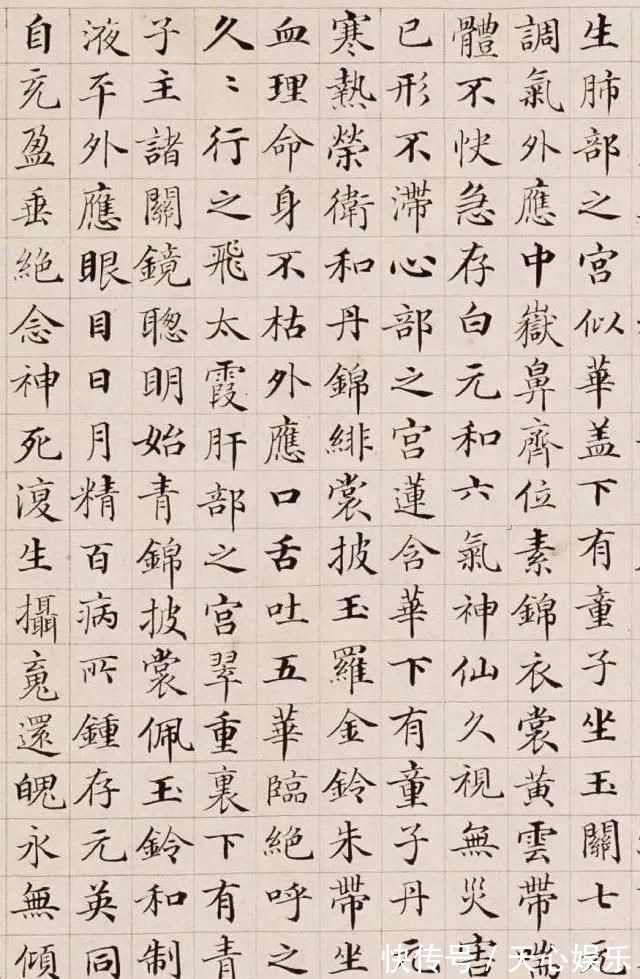 生肺部之宮似華盖下有童子坐玉關七
調氣外應中嶽鼻齊位素錦衣裳黃雲帶
體不快急存白元和六氣神仙久視無災
已形不滯心部之宮蓮含華下有童子丹
寒熱榮衛和丹錦緋裳披玉羅金鈴朱帶坐
血理命身不枯外應口舌吐五華臨絕呼之
久〻行之飛太霞肝部之宮翠重裏下有青
子主諸關鏡聰明始青錦披裳佩玉鈴和制
液平外應眼目日月精百病所鍾存元英同
自充盈垂絕念神死復生攝魂還魄永無傾
快传号 / 天心娱乐